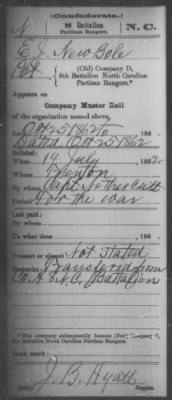 (Confederate.)
N 8th Battalion Partisan Rangers. N. C.
E J New Bole
Pvt, (Old) Company D,
8th Battalion North Carolina
Partisan Rangers.
Appears on
Company Muster Roll
of the organization named above,
for Oct 25 1862 to , 186 .
Dated Oct 25 1862
Enlisted:
When 14 July , 1862
Where Trenton
By whom Capt Nethercutt
Period For the war
Last paid:
By whom
To what time , 186 .
Present or absent Not Stated
Remarks: Transfered from
Co. A 8 N.C. Battalion
*This company subsequently became (New) Company
8th Battalion North Carolina Partisan Rangers.
Book mark:
J. B. Hyatt
Copyist.